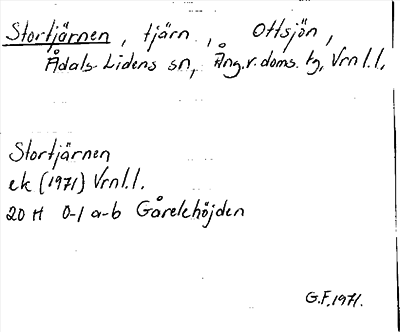 Stortjärnen, tjärn, Ottsjön,
Ådals-Lidens sn, Ång.v.doms. tg, Vrnl.l.
Stortjärnen
ek (1971) Vrnl.l.
20 H 0-1 a-b Gårelehöjden
G.F. 1971.